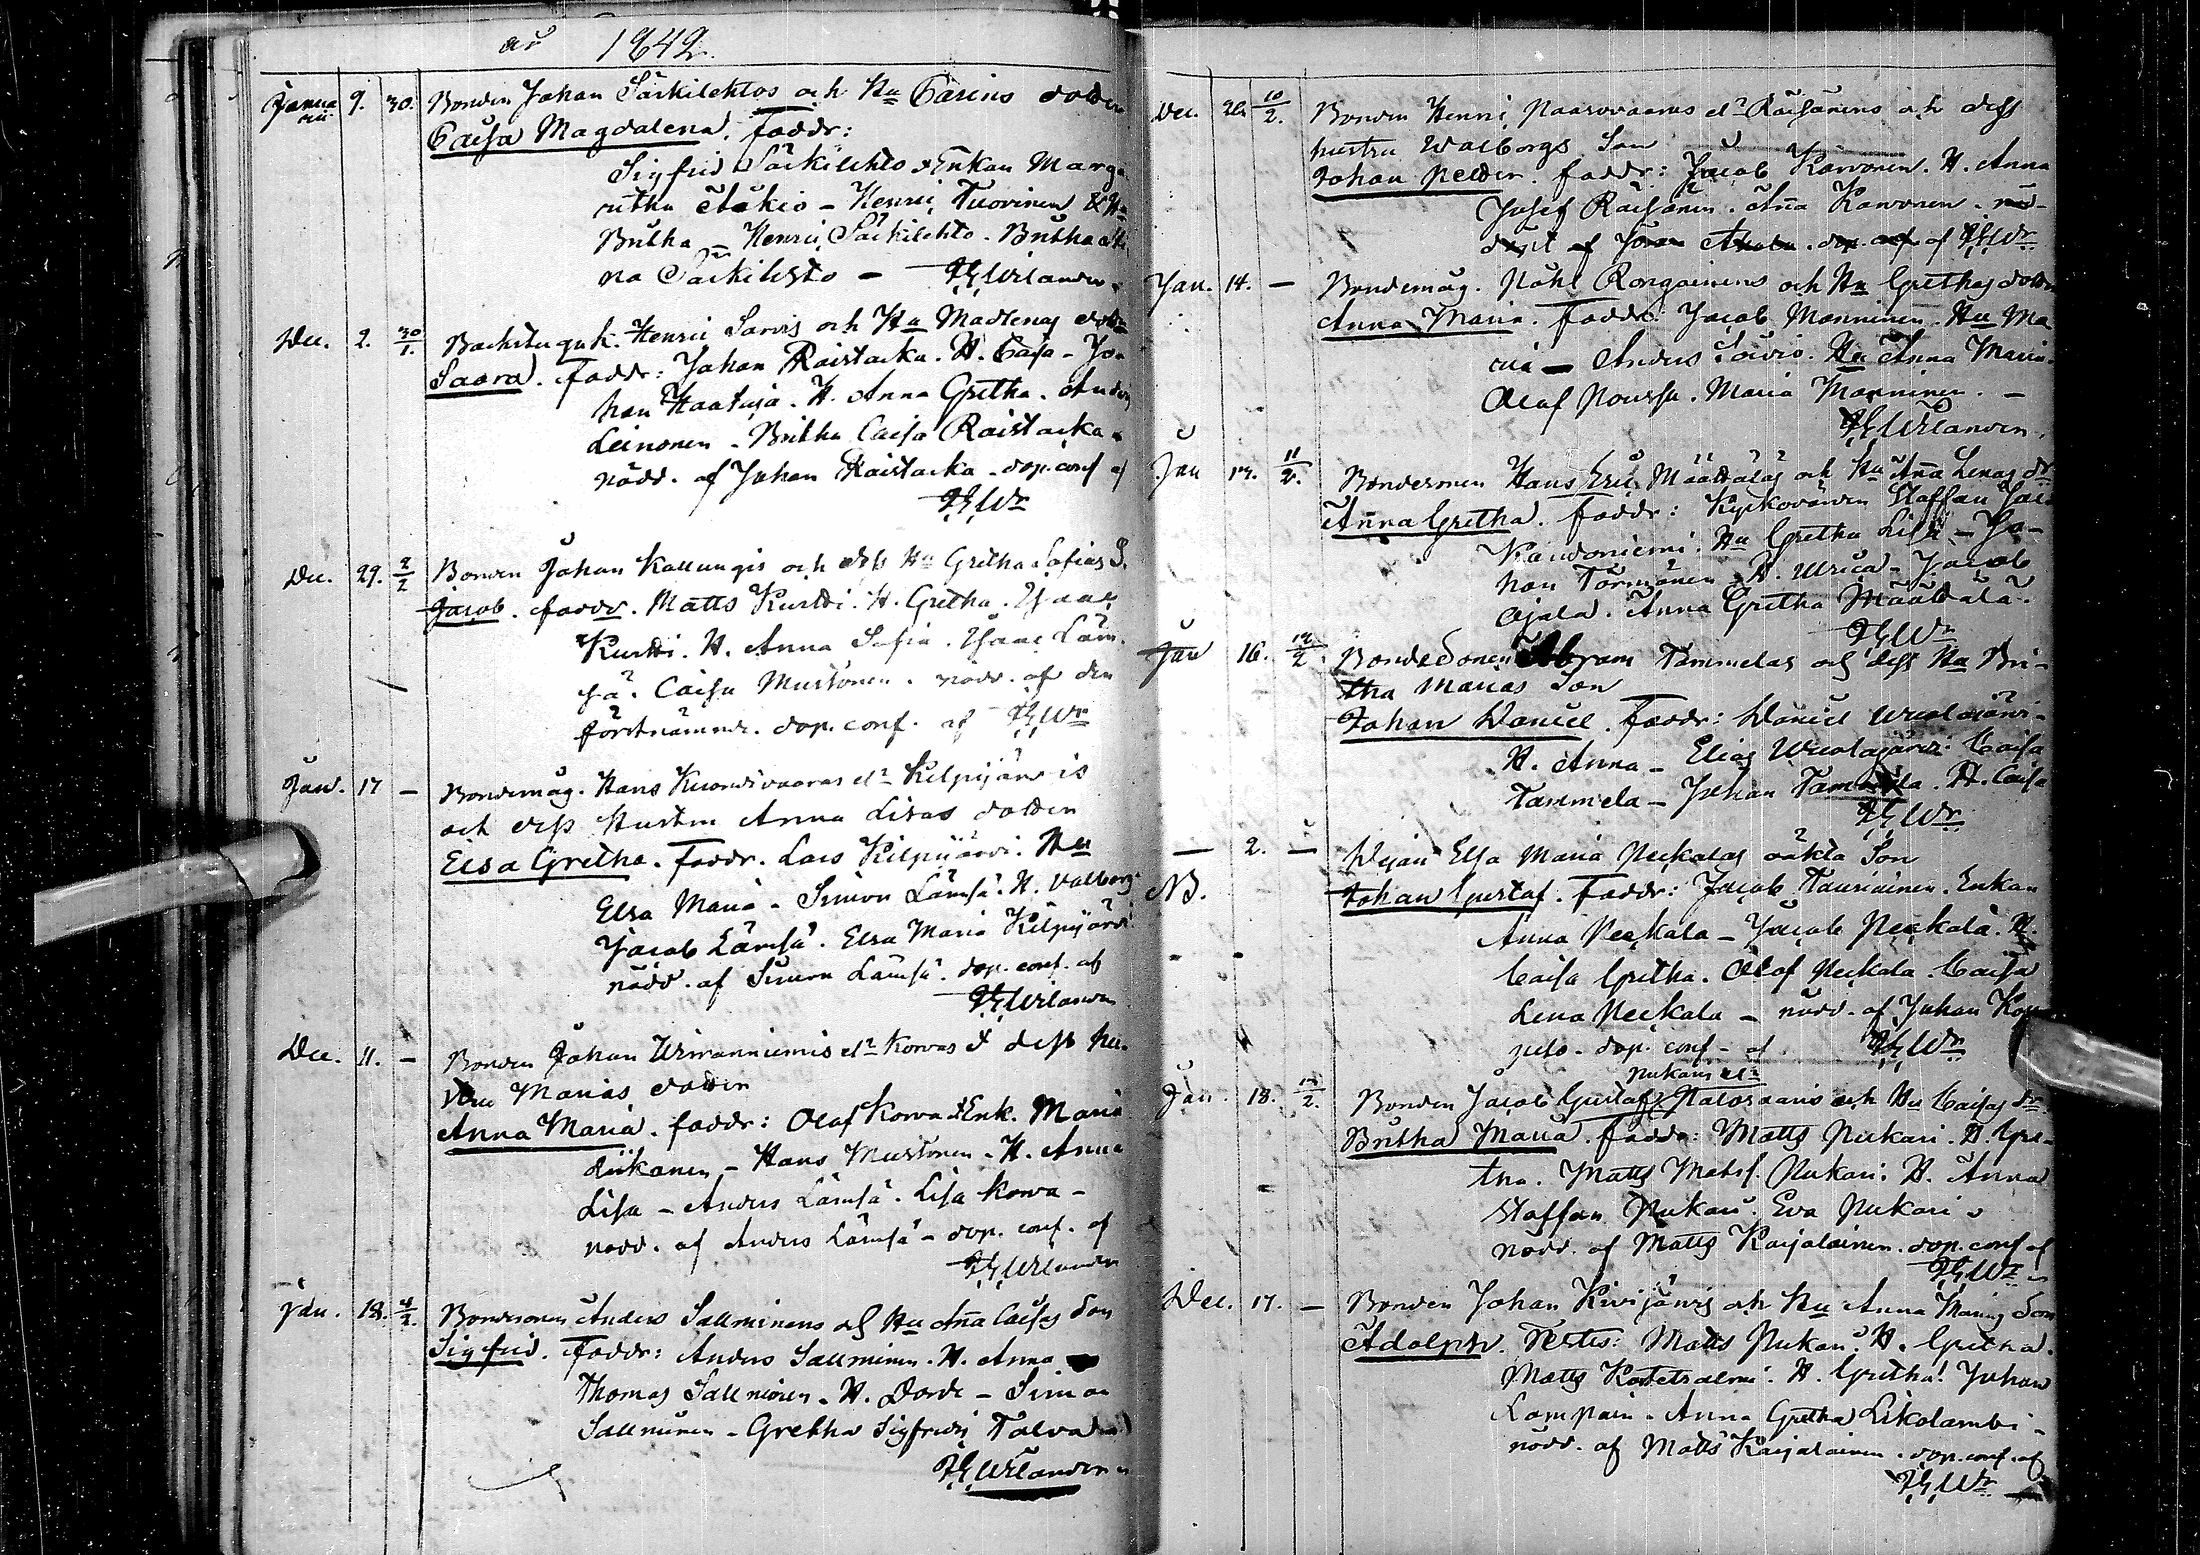 år 1842.
Janua
rii 9. 30. Bonden Johan Särkilehtos och Hu Carins dotter
Caisa Magdalena. Faddr:
Sigfrid Särkilehto & Enkan Marga
retha Askio – Henric Tuovinen & Hu
Britha – Henric Särkilehto. Britha
na Särkilehto – Wilander.
Dec. 2. 30/1. Backstuguk. Henric Sarvis och Hu Madlenas dotter
Saara. Faddr: Johan Raistacka. H. Caisa – Jo-
han Haataja. H. Anna Gretha. Anders
Leinonen – Britha Caisa Raistacka.
nödd. af Johan Raistacka – dop. conf af
Wr
Dec. 29. 2/2 Bonden Johan Kallungis och dess Hu Gretha Sofias S.
Jacob. faddr. Matts Kurtti. H. Gretha. Isaac
Kurtti. H. Anna Sofia. Isaac Läm-
sä. Caisa Mustonen. nödd. af den
förstnämnde. dop. conf. af Wr
Jan. 17 – Bondemåg. Hans Kuondivaaras el. Kilpijärvis
och dess Hustru Anna Lisas dotter
Elsa Gretha. Faddr. Lars Kilpijärvi. Hu
Elsa Maria – Simon Lämsä. H. Valborg
Jacob Lämsä. Elsa Maria Kilpijärvi
nödd. af Simon Lämsä. dop. conf. af
Wilander
Dec. 11. – Bonden Johan Wiranniemis el. Korvas & dess hu-
stru Marias dotter
Anna Maria. faddr: Olof Korva & Enk. Maria
Liikanen – Hans Mustonen – H. Anna
Lisa – Anders Lämsä. Lisa Korva –
nödd. af Anders Lämsä – dop. conf. af
Wilander
Jan. 18. 4/2. Bondesonen Anders Sallminens och Hu Aña Caisas Son
Sigfrid. Faddr: Anders Sallminen. H. Anna
Thomas Sallminen. H. Dorde – Simon
Sallminen – Gretha Sigfridsdr Talva
Wilander
Dec. 22. 10/2. Bonden Henric Naarovaaras el. Räisänens och dess
hustru Walborgs Son
Johan Petter. faddr: Jacob Karvonen. H. Anna
Josef Räisänen. Aña Karvonen. nöd-
döpt af dop. af Wr
Jan. 14. – Bondemåg. Påhl Rongainens och Hu Grethas dotter
Anna Maria. Faddr: Jacob Manninen. Hu Ma
ria – Anders Souvio. Hu Anna Maria.
Olof Nousu. Maria Manninen. –
Wilander.
Jan 13. 11/2. Bondesonen Hans Eric Määttäläs och Hu Aña Lenas dr
Anna Gretha. faddr: Kyrkovärden Staffan Jac.
Kaudoniemi. Hu Gretha Lisa – Jo-
han Törmänen. H. Ulrica – Jacob
Ojala. Anna Gretha Määttälä.
Wr
Jan 16. 12/2. Bondesonen Abram Tammelas och dess Hu Bri-
tha Marias Son
Johan Daniel. Faddr: Daniel Wuolajärvi-
H. Anna – Elias Wuolajärvi. Caisa
Tammela – Johan Tammela. H. Caisa
Wr
– 2. – Pigan Elsa Maria Neckalas oäkta Son
NB. Johan Gustaf. Faddr: Jacob Tauriainen. Enkan
Anna Neckala – Jacob Neckala. H.
Caisa Gretha. Olof Neckala. Caisa
Lena Neckala – nödd. af Johan Kop
pelo – dop. conf – af Wr
Nukaris el.
Jan. 18. 13/2. Bonden Jacob Gustafs och Hu Caisas dr
Britha Maria. Faddr: Matts Nukari. H. Gre-
tha. Matts Matsf. Nukari. H. Anna
Staffan Nukari. Eva Nukari.
nödd. af Matts Karjalainen. dop. conf af
Wr
Dec. 17. – Bonden Johan Kivijärvis och Hu Anna Marias Son
Adolph. Testes: Matts Nukari. H. Gretha.
Matts H. Gretha. Johan
Lompain. Anna Gretha Likolambi –
nödd. af Matts Karjalainen. dop. conf. af
Wr